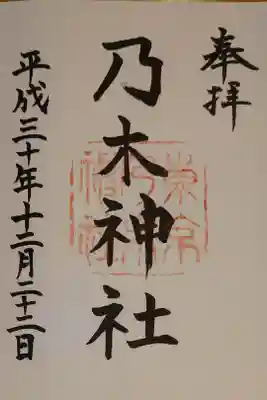 奉拝
乃木神社
平成三十年十二月二十二日